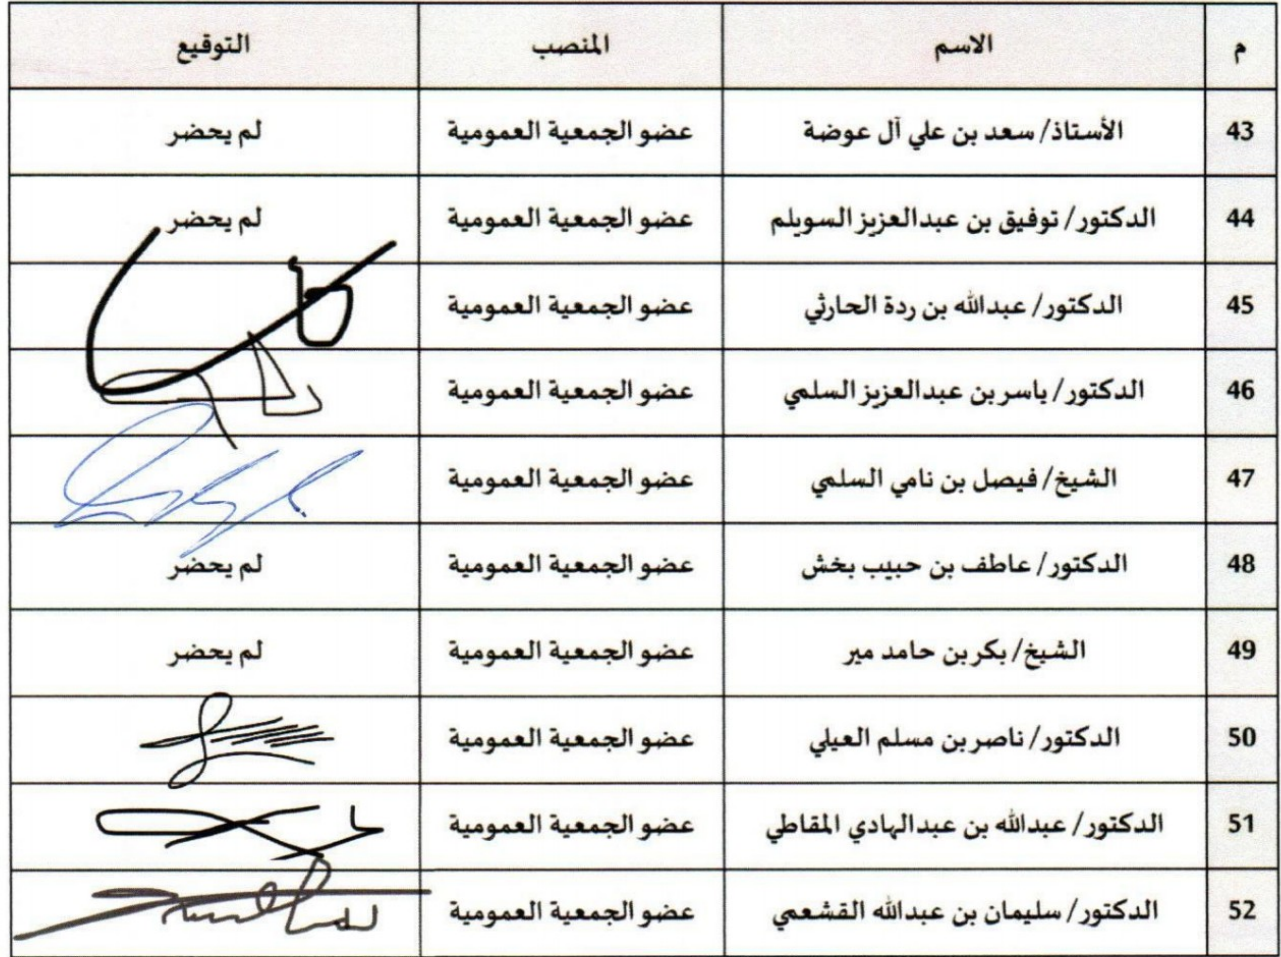 م الاسم المنصب التوقيع
43 الأستاذ/ سعد بن علي آل عوضة عضو الجمعية العمومية لم يحضر
44 الدكتور/ توفيق بن عبدالعزيز السويلم عضو الجمعية العمومية لم يحضر
45 الدكتور/ عبدالله بن ردة الحارثي عضو الجمعية العمومية
46 الدكتور/ ياسر بن عبدالعزيز السلمي عضو الجمعية العمومية
47 الشيخ/ فيصل بن نامي السلمي عضو الجمعية العمومية
48 الدكتور/ عاطف بن حبيب بخش عضو الجمعية العمومية لم يحضر
49 الشيخ/ بكر بن حامد مير عضو الجمعية العمومية لم يحضر
50 الدكتور/ ناصر بن مسلم العيلي عضو الجمعية العمومية
51 الدكتور/ عبدالله بن عبدالهادي المقاطي عضو الجمعية العمومية
52 الدكتور/ سليمان بن عبدالله القشعمي عضو الجمعية العمومية